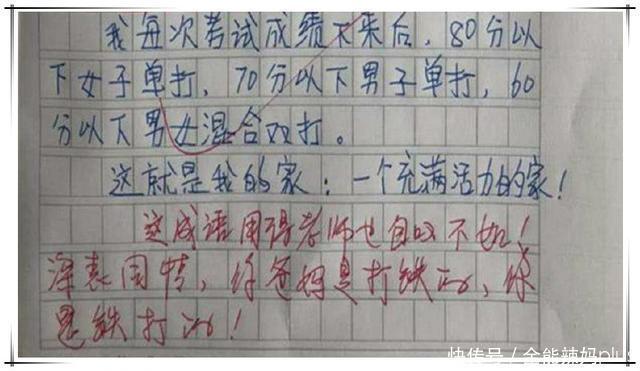 我每次考试成绩下来后，80分以
下女子单打，70分以下男子单打，60
分以下男女混合双打。
这就是我的家：一个充满活力的家！
这成语用得老师也自叹不如！
深表同情，你爸妈是打铁的，你
是铁打的！
快传号／全能辣妈plus